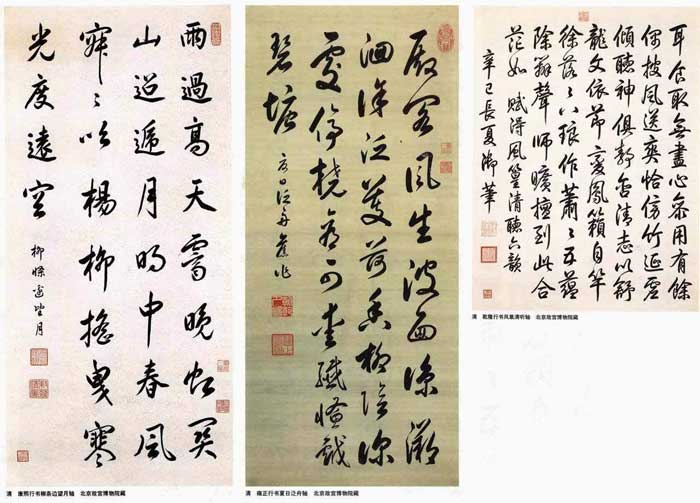 雨過高天霽晚虹關
山迢遞月明中春風
寂〻吹楊柳搖曳寒
光度遠空
柳條邊望月
清 康熙行书柳条边望月轴 北京故宫博物院藏
殿閣風生波面涼溯
洄徐泛芰荷香柳陰深
處停橈看可愛纖鯈戲
碧塘
夏日泛舟舊作
清 雍正行书夏日泛舟轴 北京故宫博物院藏
耳食取無盡心家用有餘
披風送爽恰仿竹近虛
傾聽神俱靜含情志以舒
龍文依節變鳳籟自竿
徐落〻八琅作蕭〻五蘊
除聲師曠擅到此合
茫如 賦得風篁清聽六韻
辛巳長夏御筆
清 乾隆行书风篁清听轴 北京故宫博物院藏